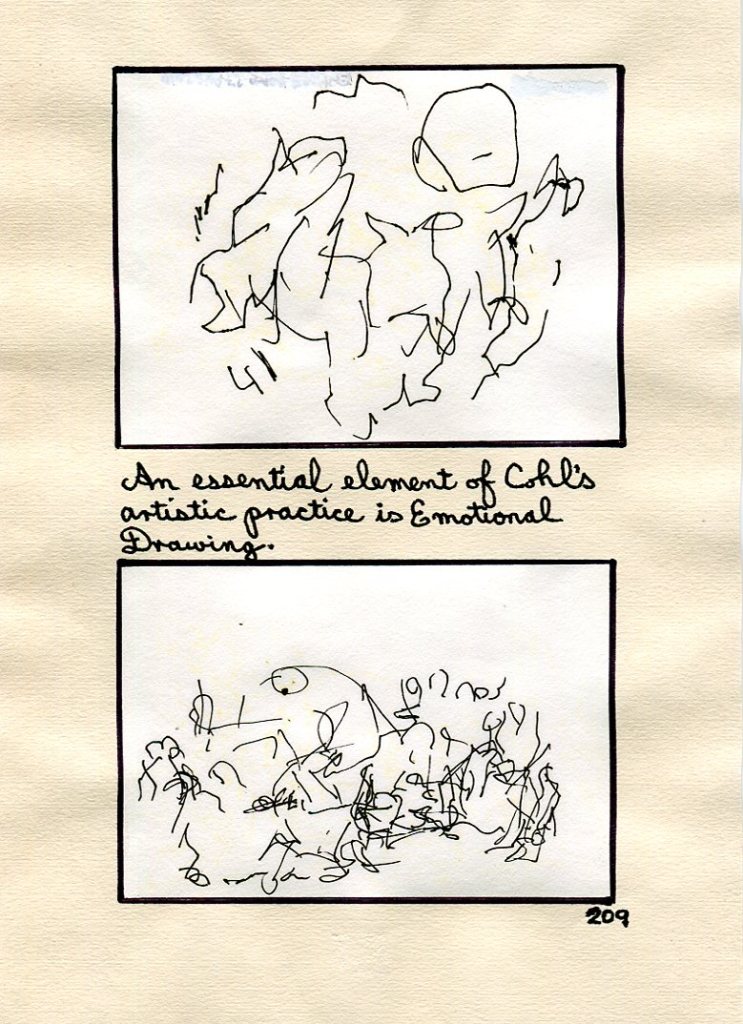 An essential element of Cohl's
artistic practice is Emotional
Drawing.
209